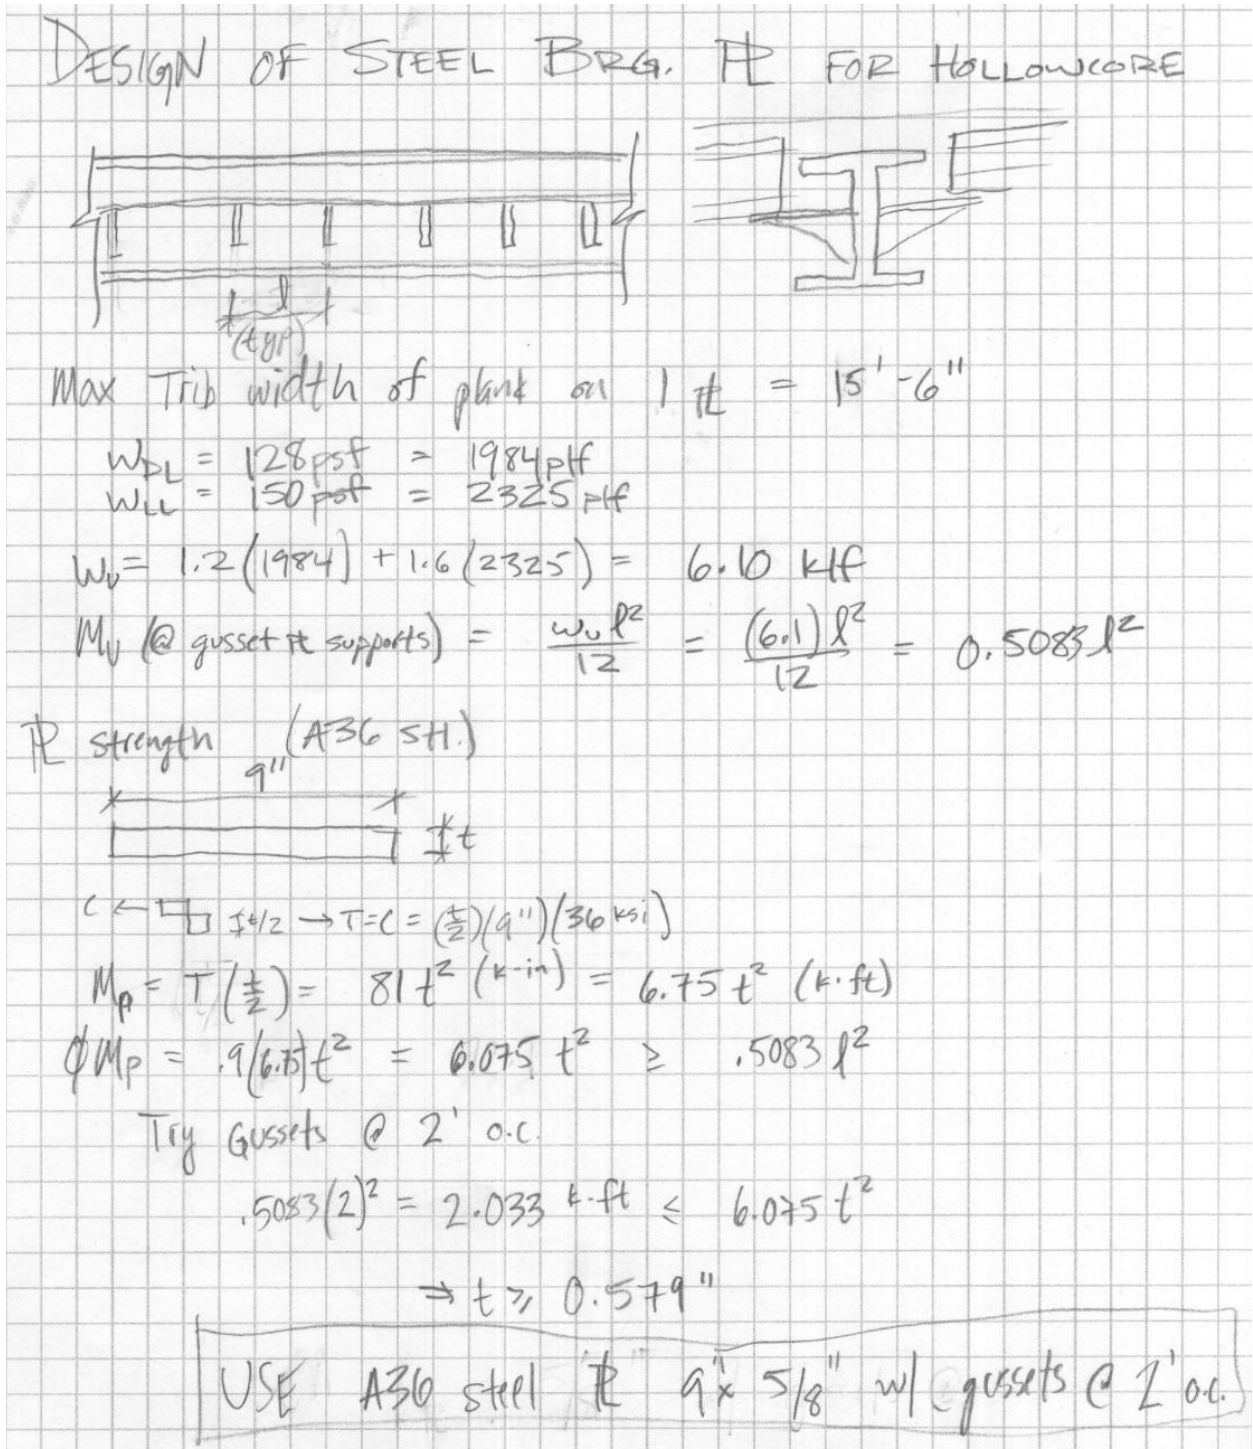 DESIGN OF STEEL BRG. PL FOR HOLLOWCORE
l
(typ)
Max Trib width of plank on 1 PL = 15'-6"
WDL = 128 psf = 1984 plf
WLL = 150 psf = 2325 plf
Wu = 1.2(1984) + 1.6(2325) = 6.10 klf
Mu (@ gusset PL supports) = wu l²/12 = (6.1) l²/12 = 0.5083 l²
PL strength (A36 stl.)
9"
t
C ← t/2 → T=C = (t/2)(9")(36 ksi)
Mp = T(t/2) = 81 t² (k-in) = 6.75 t² (k·ft)
ϕMp = .9(6.75)t² = 6.075 t² ≥ .5083 l²
Try Gussets @ 2' o.c.
.5083(2)² = 2.033 k·ft ≤ 6.075 t²
⇒ t ≥ 0.579"
USE A36 steel PL 9"x 5/8" w/ gussets @ 2' o.c.